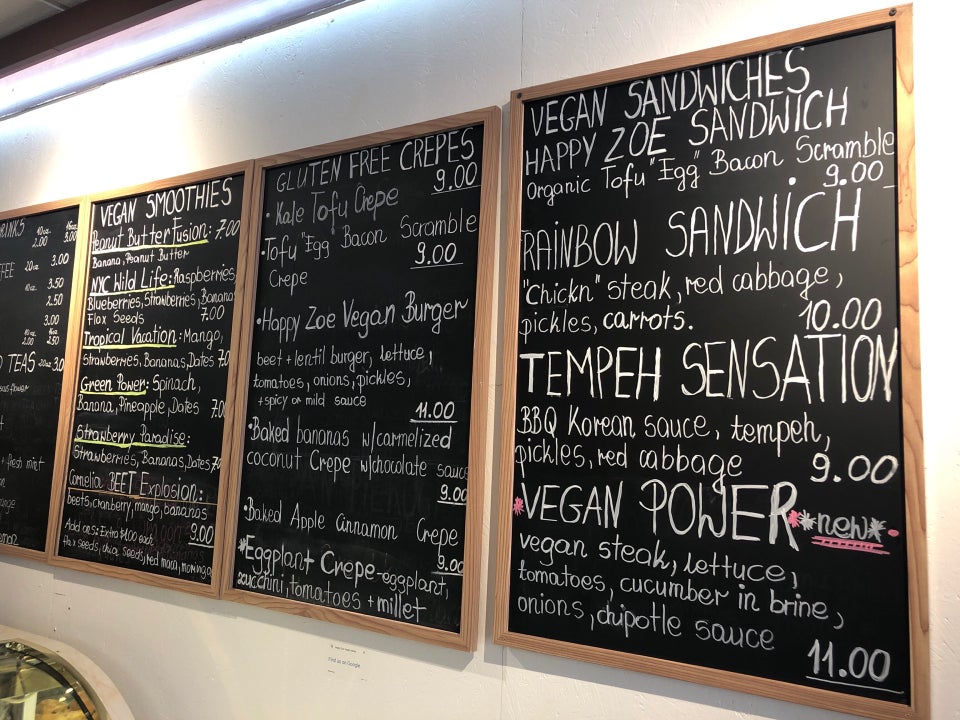 RINKS
2.00 3.00
FFEE 20oz 3.00
3.50
2.50
3.00
2.00 2.50
TEAS 20oz 3.0
+ fresh mint
VEGAN SMOOTHIES
Peanut Butter Fusion: 7.00
Banana, Peanut Butter
NYC Wild Life: Raspberries,
Blueberries, Strawberries, Banana
Flax Seeds 7.00
Tropical Vacation: Mango,
Strawberries, Bananas, Dates 7.0
Green Power: Spinach,
Banana, Pineapple, Dates 7.0
Strawberry Paradise:
Strawberries, Bananas, Dates, 7.0
Cornelia BEET Explosion:
beets, cranberry, mango, bananas
9.00
Add ons: Extra $1.00 each
flax seeds, chia seeds, red maca, moringa
GLUTEN FREE CREPES
9.00
• Kale Tofu Crepe
• Tofu "Egg" Bacon Scramble
9.00
Crepe
• Happy Zoe Vegan Burger
beet + lentil burger, lettuce,
tomatoes, onions, pickles,
+ spicy or mild sauce
11.00
• Baked bananas w/carmelized
coconut Crepe w/chocolate sauce
9.00
• Baked Apple Cinnamon Crepe
9.00
*Eggplant Crepe - eggplant,
zucchini, tomatoes + millet
VEGAN SANDWICHES
HAPPY ZOE SANDWICH
Organic Tofu "Egg" Bacon Scramble
9.00
RAINBOW SANDWICH
"Chickn" steak, red cabbage,
pickles, carrots. 10.00
TEMPEH SENSATION
BBQ Korean sauce, tempeh,
pickles, red cabbage 9.00
*VEGAN POWER **new*
vegan steak, lettuce,
tomatoes, cucumber in brine,
onions, chipotle sauce
11.00
Find us on Google